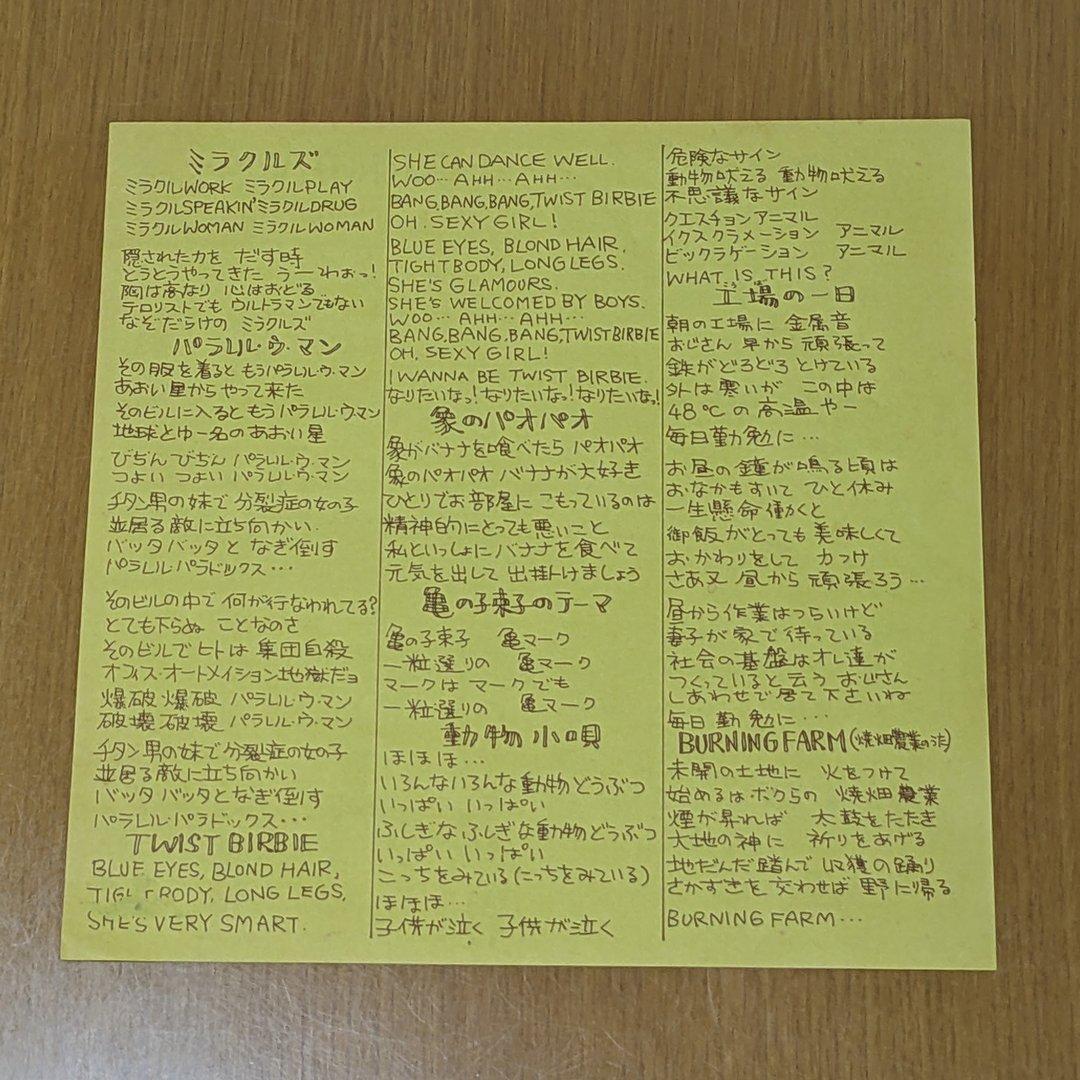 ミラクルズ
ミラクルWORK ミラクルPLAY
ミラクルSPEAKIN'ミラクルDRUG
ミラクルWOMAN ミラクルWOMAN
隠された力を だす時
とうとうやってきた うーわぉっ!
胸は高なり 心はおどる
テロリストでも ウルトラマンでもない
なぞだらけの ミラクルズ
パラレル・ウ・マン
その服を着ると もうパラレル・ウ・マン
あおい星からやって来た
そのビルに入ると もう パラレル・ウ・マン
地球とゆー名のあおい星
びぢん びぢん パラレル・ウ・マン
つよい つよい パラレル・ウ・マン
チタン男の妹で 分裂症の女の子
並居る敵に立ち向かい
バッタ バッタと なぎ倒す
パラレルパラドックス・・・
そのビルの中で 何が行なわれてる?
とても下らぬ ことなのさ
そのビルでヒトは 集団自殺
オフィス・オートメイション地獄だョ
爆破 爆破 パラレル・ウ・マン
破壊 破壊 パラレル・ウ・マン
チタン男の妹で 分裂症の女の子
並居る敵に立ち向かい
バッタ バッタと なぎ倒す
パラレル・パラドックス・・・
TWIST BIRBIE
BLUE EYES, BLOND HAIR,
BODY, LONG LEGS,
SHE'S VERY SMART.
SHE CAN DANCE WELL.
WOO… AHH… AHH…
BANG, BANG, BANG, TWIST BIRBIE
OH, SEXY GIRL!
BLUE EYES, BLOND HAIR.
TIGHT BODY, LONG LEGS.
SHE'S GLAMOURS.
SHE'S WELCOMED BY BOYS.
WOO… AHH… AHH…
BANG, BANG, BANG, TWIST BIRBIE
OH, SEXY GIRL!
I WANNA BE TWIST BIRBIE.
なりたいなっ!なりたいなっ!なりたいなっ!
象のパオパオ
象がバナナを喰べたら パオパオ
象のパオパオ バナナが大好き
ひとりでお部屋に こもっているのは
精神的にとっても悪いこと
私といっしょに バナナを食べて
元気を出して 出掛けましょう
亀の子束子のテーマ
亀の子束子 亀マーク
一粒選りの 亀マーク
マークは マークでも
一粒選りの 亀マーク
動物小唄
ほほほ…
いろんないろんな動物どうぶつ
いっぱい いっぱい
ふしぎな ふしぎな動物どうぶつ
いっぱい いっぱい
こっちをみている(こっちをみている)
ほほほ…
子供が泣く 子供が泣く
危険なサイン
動物吠える 動物吠える
不思議なサイン
クエスチョンアニマル
イクスクラメーション アニマル
ビックラゲーション アニマル
WHAT IS THIS?
工場の一日
朝の工場に 金属音
おじさん 早から 頑張って
鉄がどろどろ とけている
外は寒いが この中は
48℃の高温やー
毎日勤勉に…
お昼の鐘が鳴る頃は
おなかもすいて ひと休み
一生懸命働くと
御飯がとっても美味しくて
おかわりをして 力つけ
さあ又 昼から 頑張ろう…
昼から作業はつらいけど
妻子が家で待っている
社会の基盤はオレ達が
つくっていると云う おじさん
しあわせで居て下さいね
毎日勤勉に…
BURNING FARM (焼畑農業のうた)
未開の土地に 火をつけて
始めるはボクらの 焼畑農業
煙が昇れば 太鼓をたたき
大地の神に 祈りをあげる
地だんだ踏んで 収獲の踊り
さかずきを 交わせば 野に帰る
BURNING FARM…